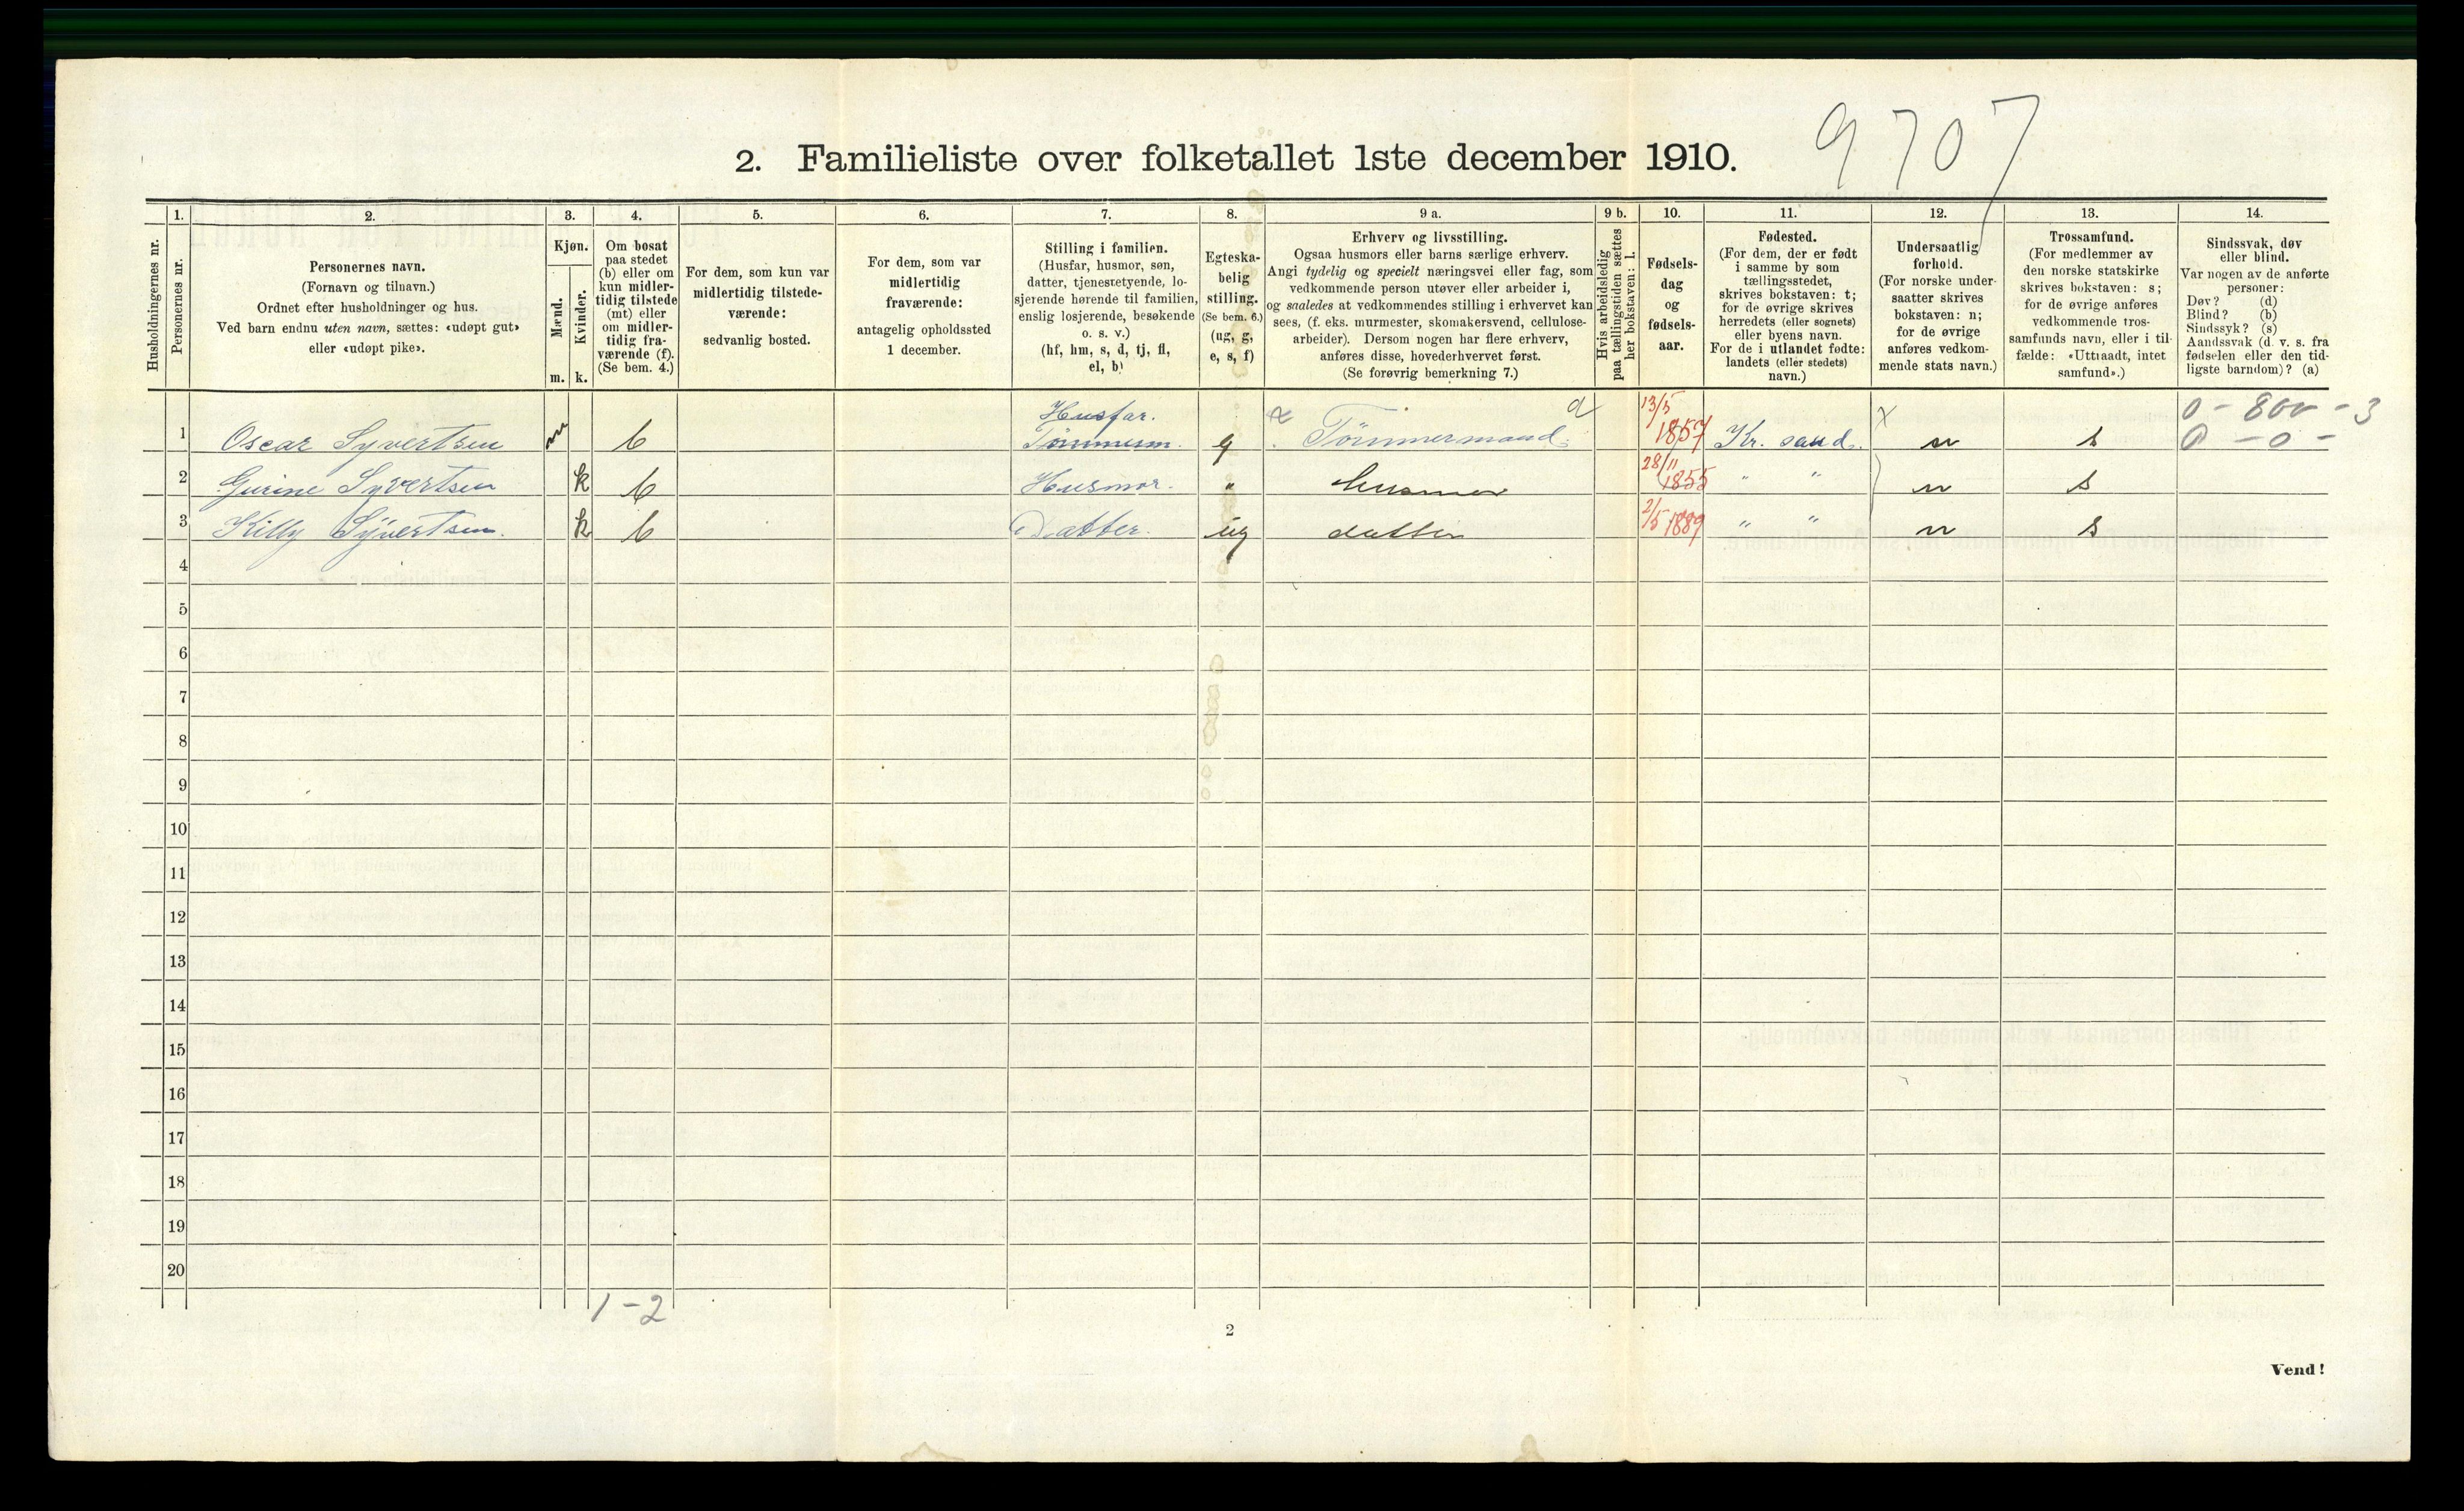 9707
2. Familieliste over folketallet 1ste december 1910.
1. 2. 3. 4. 5. 6. 7. 8. 9 a. 9 b. 10. 11. 12. 13. 14.
Husholdningernes nr.
Personernes nr.
Personernes navn.
(Fornavn og tilnavn.)
Ordnet efter husholdninger og hus.
Ved barn endnu uten navn, sættes: «udøpt gut»
eller «udøpt pike».
Kjøn.
Mænd.
Kvinder.
m. k.
Om bosat
paa stedet
(b) eller om
kun midler-
tidig tilstede
(mt) eller
om midler-
tidig fra-
værende (f).
(Se bem. 4.)
For dem, som kun var
midlertidig tilstede-
værende:
sedvanlig bosted.
For dem, som var
midlertidig
fraværende:
antagelig opholdssted
1 december.
Stilling i familien.
(Husfar, husmor, søn,
datter, tjenestetyende, lo-
sjerende hørende til familien,
enslig losjerende, besøkende
o. s. v.)
(hf, hm, s, d, tj, fl,
el, b)
Egteska-
belig
stilling.
(Se bem. 6.)
(ug, g,
e, s, f)
Erhverv og livsstilling.
Ogsaa husmors eller barns særlige erhverv.
Angi tydelig og specielt næringsvei eller fag, som
vedkommende person utøver eller arbeider i,
og saaledes at vedkommendes stilling i erhvervet kan
sees, (f. eks. murmester, skomakersvend, cellulose-
arbeider). Dersom nogen har flere erhverv,
anføres disse, hovederhvervet først.
(Se forøvrig bemerkning 7.)
Hvis arbeidsledig
paa tællingstiden sættes
her bokstaven: l.
Fødsels-
dag
og
fødsels-
aar.
Fødested.
(For dem, der er født
i samme by som
tællingsstedet,
skrives bokstaven: t;
for de øvrige skrives
herredets (eller sognets)
eller byens navn.
For de i utlandet fødte:
landets (eller stedets)
navn.)
Undersaatlig
forhold.
(For norske under-
saatter skrives
bokstaven: n;
for de øvrige
anføres vedkom-
mende stats navn.)
Trossamfund.
(For medlemmer av
den norske statskirke
skrives bokstaven: s;
for de øvrige anføres
vedkommende tros-
samfunds navn, eller i til-
fælde: «Uttraadt, intet
samfund».)
Sindssvak, døv
eller blind.
Var nogen av de anførte
personer:
Døv? (d)
Blind? (b)
Sindssyk? (s)
Aandssvak (d. v. s. fra
fødselen eller den tid-
ligste barndom)? (a)
Husfar. 13/5 0 - 800 - 3
1 Oscar Syvertsen m b g Tömmermand 1857 Kr. sand. n s 0 - 0 -
2 Gurine Syvertsen k b Husmor. " husmor 28/11 1855 " " n s
3 Killy Syvertsen. k b Datter. ug datter 2/5 1889 " " n s
4
5
6
7
8
9
10
11
12
13
14
15
16
17
18
19
20
1-2
2
Vend!